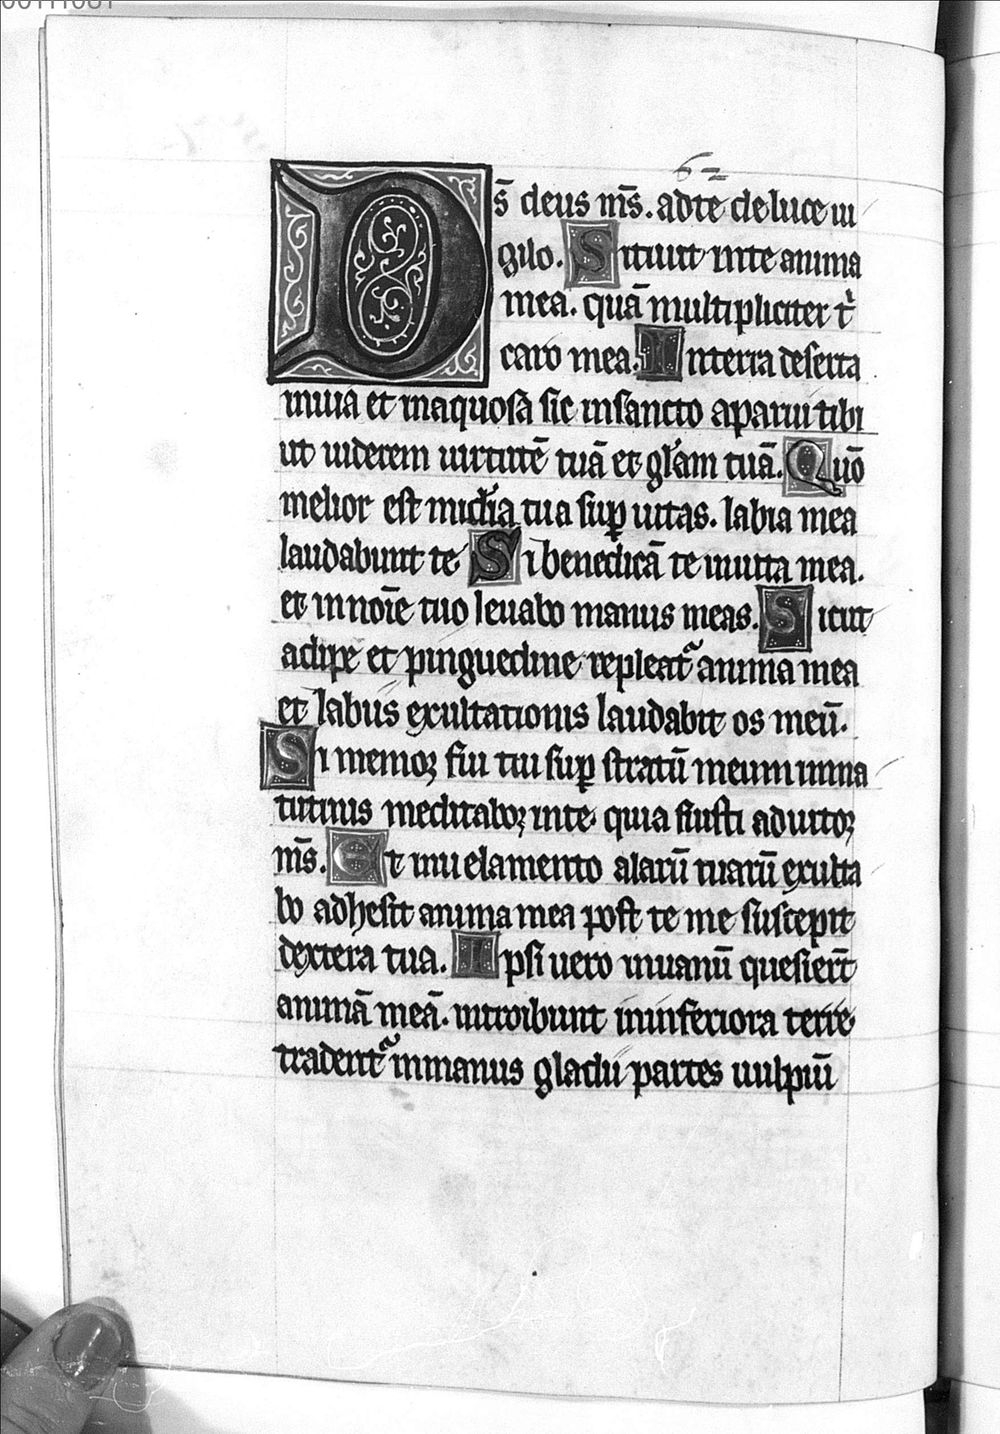 62
Ds̄ deus m̄s. adte de luce ui
gilo. Sitiuit inte anima
mea. quā multipliciter t
caro mea. Interra deserta
inuia et inaquosa sic insancto aparui tibi
ut uiderem uirtutē tuā et glam tuā. Quō
melior est mia tua sup uitas. labia mea
laudabunt te Si benedicā te inuita mea.
et innoīe tuo leuabo manus meas. Sicut
adipe et pinguedine repleat anima mea
et labiis exultationis laudabit os meū.
Si memor fui tui sup stratū meum inma
tutinis meditabor inte quia fuisti adiutor
m̄s. Et inuelamento alarū tuarū exulta
bo adhesit anima mea post te me suscepit
dextera tua. Ipsi uero inuanū quesier̄t
animā meā. introibunt ininferiora terre
tradent inmanus gladii partes uulpiū